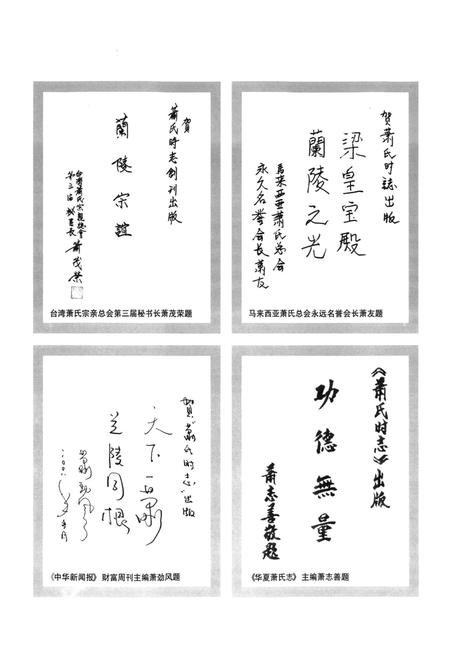 贺
萧氏时志创刊出版
蘭陵宗誼
台湾萧氏宗親總會
第三届秘書長萧茂榮
台湾萧氏宗亲总会第三届秘书长萧茂荣题
贺萧氏时誌出版
梁皇宝殿
蘭陵之光
馬来西亚萧氏总会
永久名誉会长萧友
马来西亚萧氏总会永远名誉会长萧友题
賀萧氏时志出版
天下一萧
兰陵同根
萧劲风
《中华新闻报》财富周刊主编萧劲风题
《萧氏时志》出版
功德無量
萧志善敬题
《华夏萧氏志》主编萧志善题